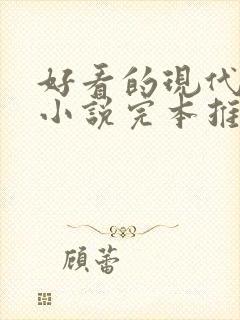 好看的現代
小說完本推
顧蕾